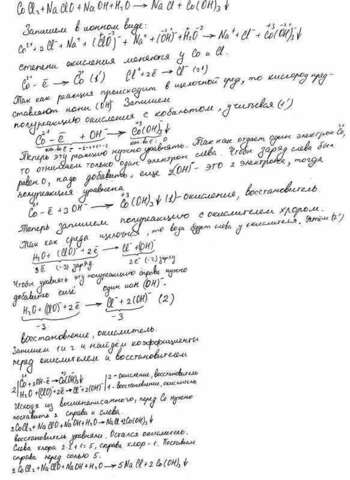 CoCl₂ + NaClO + NaOH + H₂O → NaCl + Co(OH)₃↓
Запишем в ионном виде:
Co²⁺ + 2Cl⁻ + Na⁺ + (ClO)⁻ + Na⁺ + (OH)⁻ + H₂O → Na⁺ + Cl⁻ + Co(OH)₃↓
степени окисления меняются у Co и Cl.
Co²⁺ - ē → Co³⁺ (1') Cl⁺ + 2ē → Cl⁻ (2')
Так как реакция происходит в щелочной среде, то кислород предс-
тавляют ионы (OH)⁻. Запишем
полуреакцию окисления с кобальтом, учитывая (1')
Co²⁺ - ē + OH⁻ → Co(OH)₃↓
Теперь эту реакцию нужно уравнять. Так как отдает один электрон Co²⁺,
то отнимаем только один электрон слева. Чтобы заряд слева был
равен 0, надо добавить еще 2OH⁻ - это 2 электрона, тогда
полуреакция уравнена
Co²⁺ - ē + 3OH⁻ → Co(OH)₃↓ (1) - окисление, восстановитель
Теперь запишем полуреакцию с окислителем хлором.
Так как среда щелочная, то вода будет слева у окислителя,
H₂O + (ClO)⁻ + 2ē → Cl⁻ + (OH)⁻
3ē (-3) заряд 2ē (-2) заряд
Чтобы уравнять эту полуреакцию справа нужно
добавить еще один ион (OH)⁻.
H₂O + (ClO)⁻ + 2ē → Cl⁻ + 2(OH)⁻ (2)
-3 -3
восстановление, окислитель.
Запишем 1 и 2 и найдем коэффициенты
перед окислителем и восстановителем
2|Co²⁺ + 3OH⁻ - ē → Co(OH)₃↓ |2 - окисление, восстановитель
1|H₂O + (ClO)⁻ + 2ē → Cl⁻ + 2(OH)⁻ |1 - восстановление, окислитель
Исходя из вышенаписанного, перед Co нужно
поставить 2 справа и слева
2CoCl₂ + NaClO + NaOH + H₂O → NaCl + 2Co(OH)₃↓
восстановитель уравняли. Остался окислитель.
Слева хлора 2·2+1=5, справа хлор - 1. Поставим
справа перед солью 5.
2CoCl₂ + NaClO + NaOH + H₂O → 5NaCl + 2Co(OH)₃↓